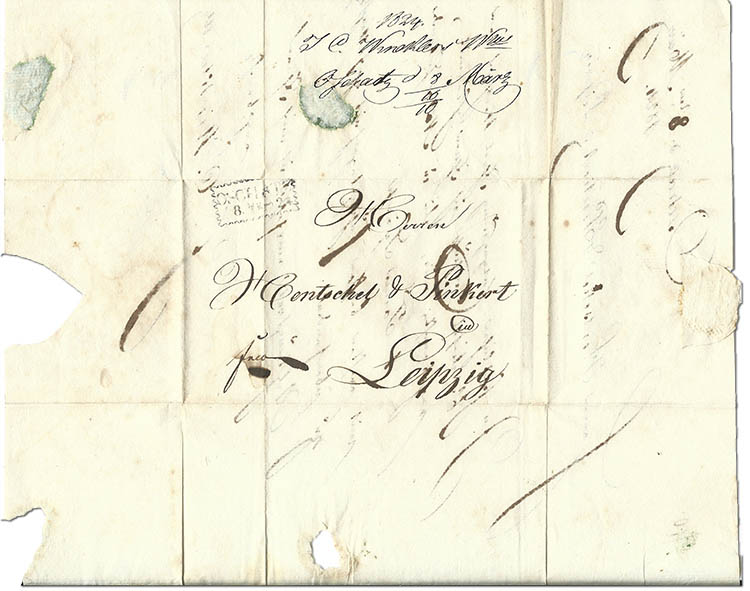 1824.
J C Wincklers Wwe
Oschatz d 8 März
10
10
8
Herren
Hentschel & Pinkert
in
frco Leipzig